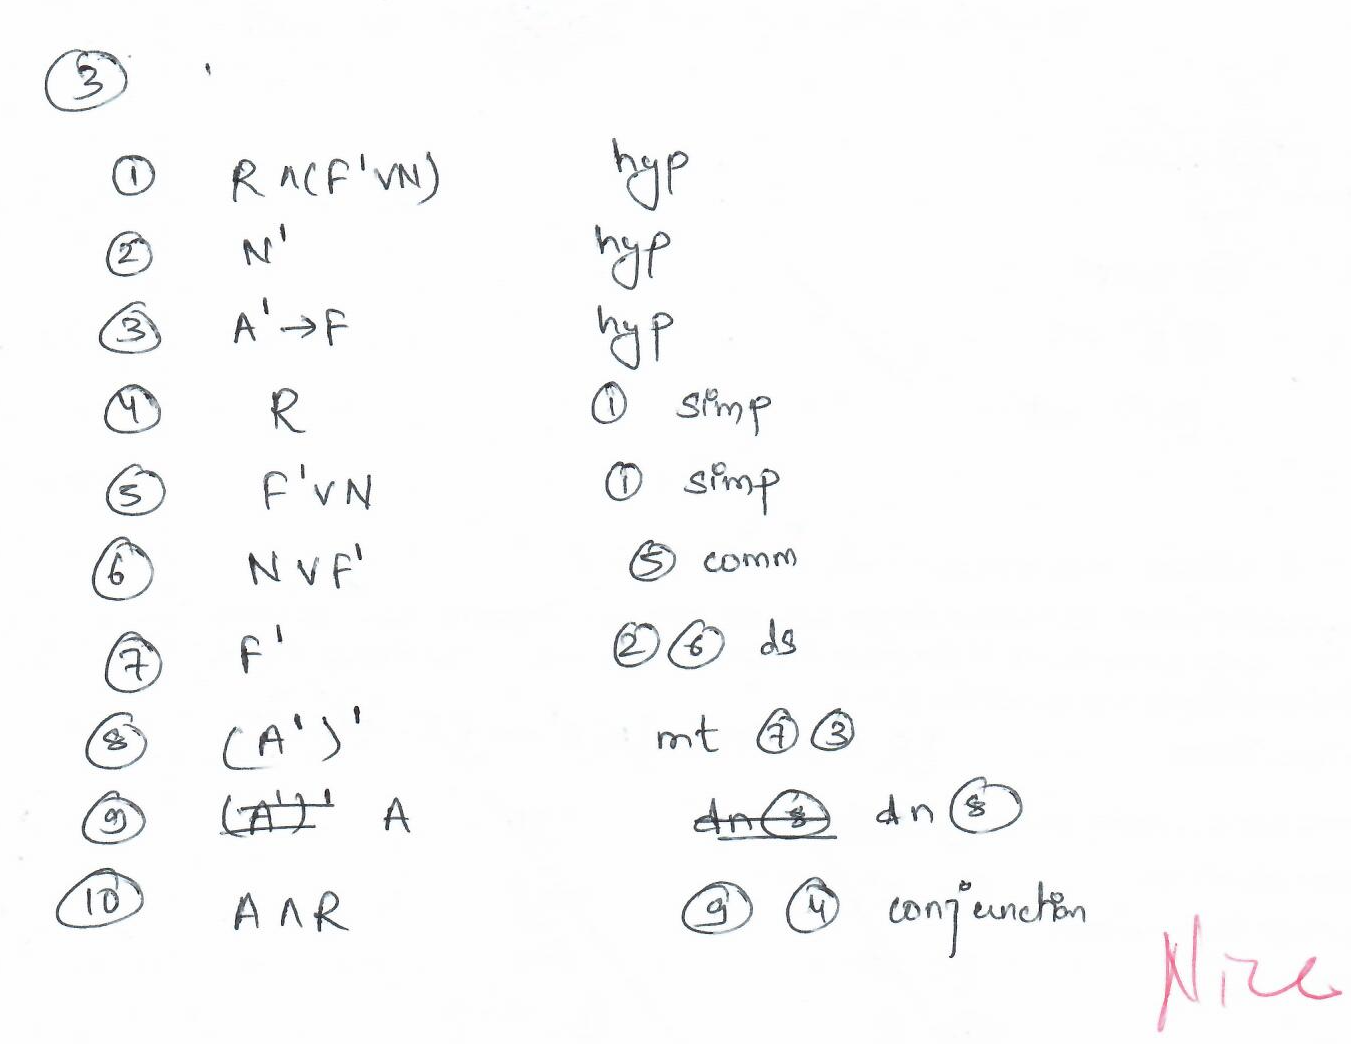 ③
① R ∧(F'∨N) hyp
② N' hyp
③ A'→F hyp
④ R ① simp
⑤ F'∨N ① simp
⑥ N∨F' ⑤ comm
⑦ F' ② ⑥ ds
⑧ (A')' mt ⑦ ③
⑨ (A')' A dn ⑧ dn ⑧
⑩ A∧R ⑨ ④ conjunction
Nice